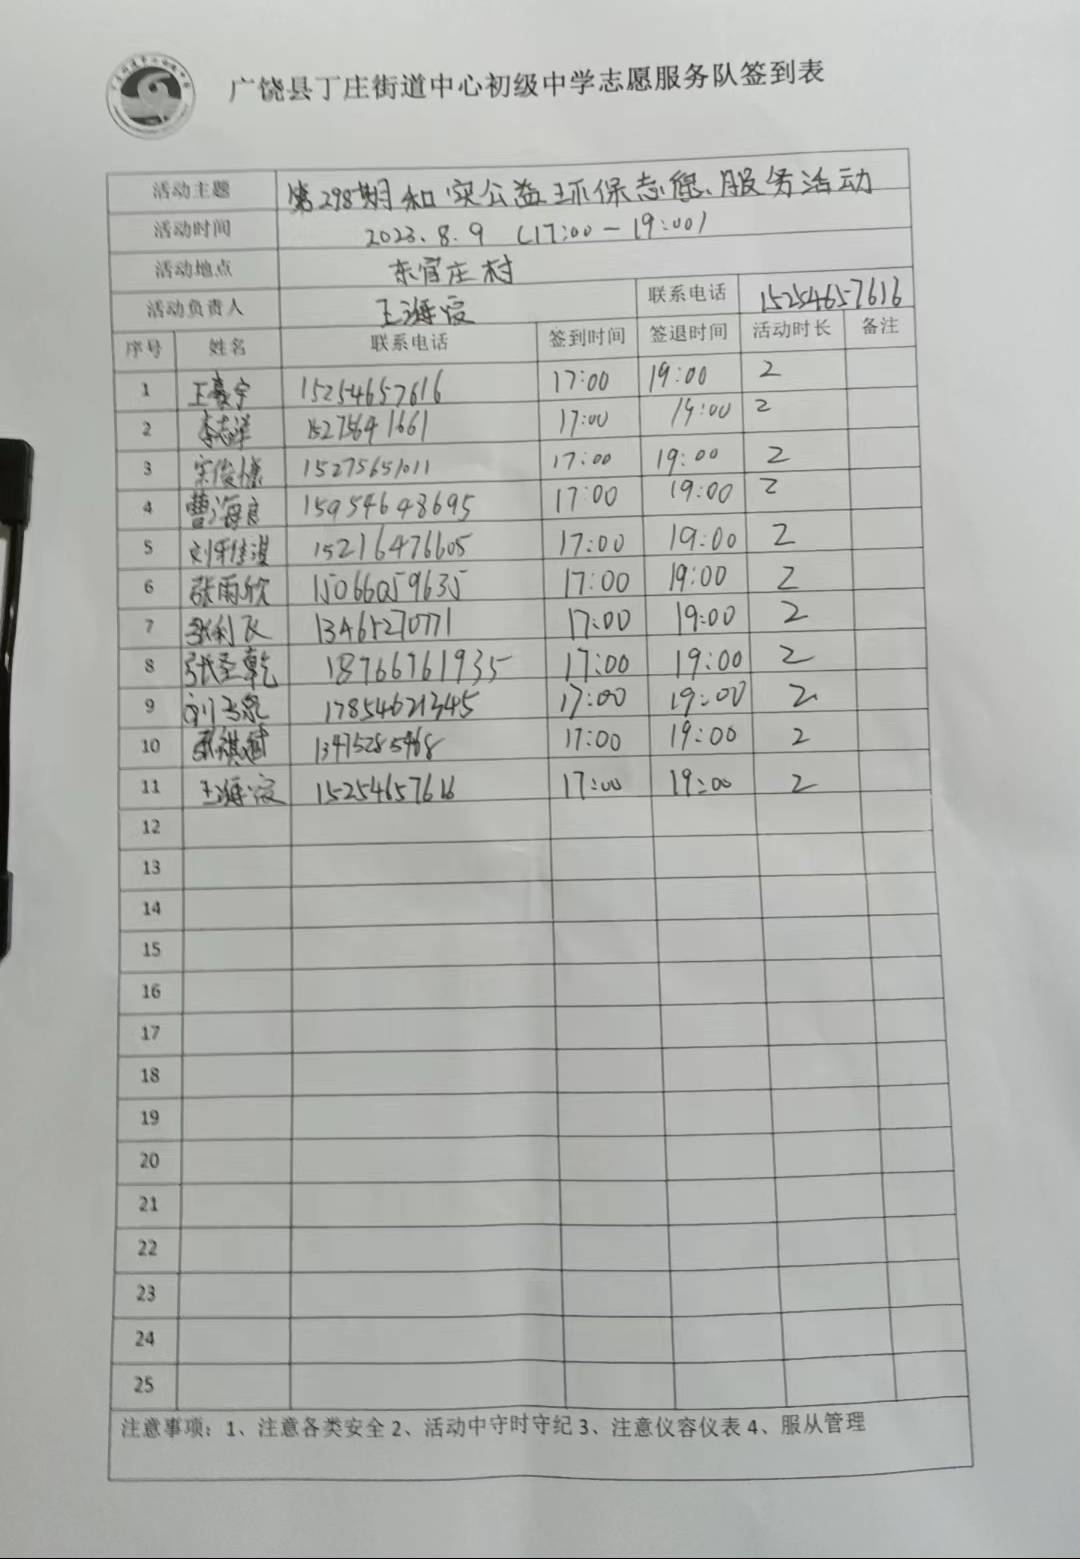 广饶县丁庄街道中心初级中学志愿服务队签到表
活动主题 第298期和实公益环保志愿服务活动
活动时间 2023.8.9 (17:00-19:00)
活动地点 东官庄村
活动负责人 王海 联系电话 15254657616
序号 姓名 联系电话 签到时间 签退时间 活动时长 备注
1 王豪宇 15254657616 17:00 19:00 2
2 李志洋 15275691661 17:00 19:00 2
3 宋俊 15275651011 17:00 19:00 2
4 曹海良 15954648695 17:00 19:00 2
5 15216476605 17:00 19:00 2
6 张雨欣 15066059635 17:00 19:00 2
7 张利民 13465270771 17:00 19:00 2
8 张圣乾 18766761935 17:00 19:00 2
9 17854621345 17:00 19:00 2
10 13475285468 17:00 19:00 2
11 王海 15254657616 17:00 19:00 2
12
13
14
15
16
17
18
19
20
21
22
23
24
25
注意事项：1、注意各类安全 2、活动中守时守纪 3、注意仪容仪表 4、服从管理